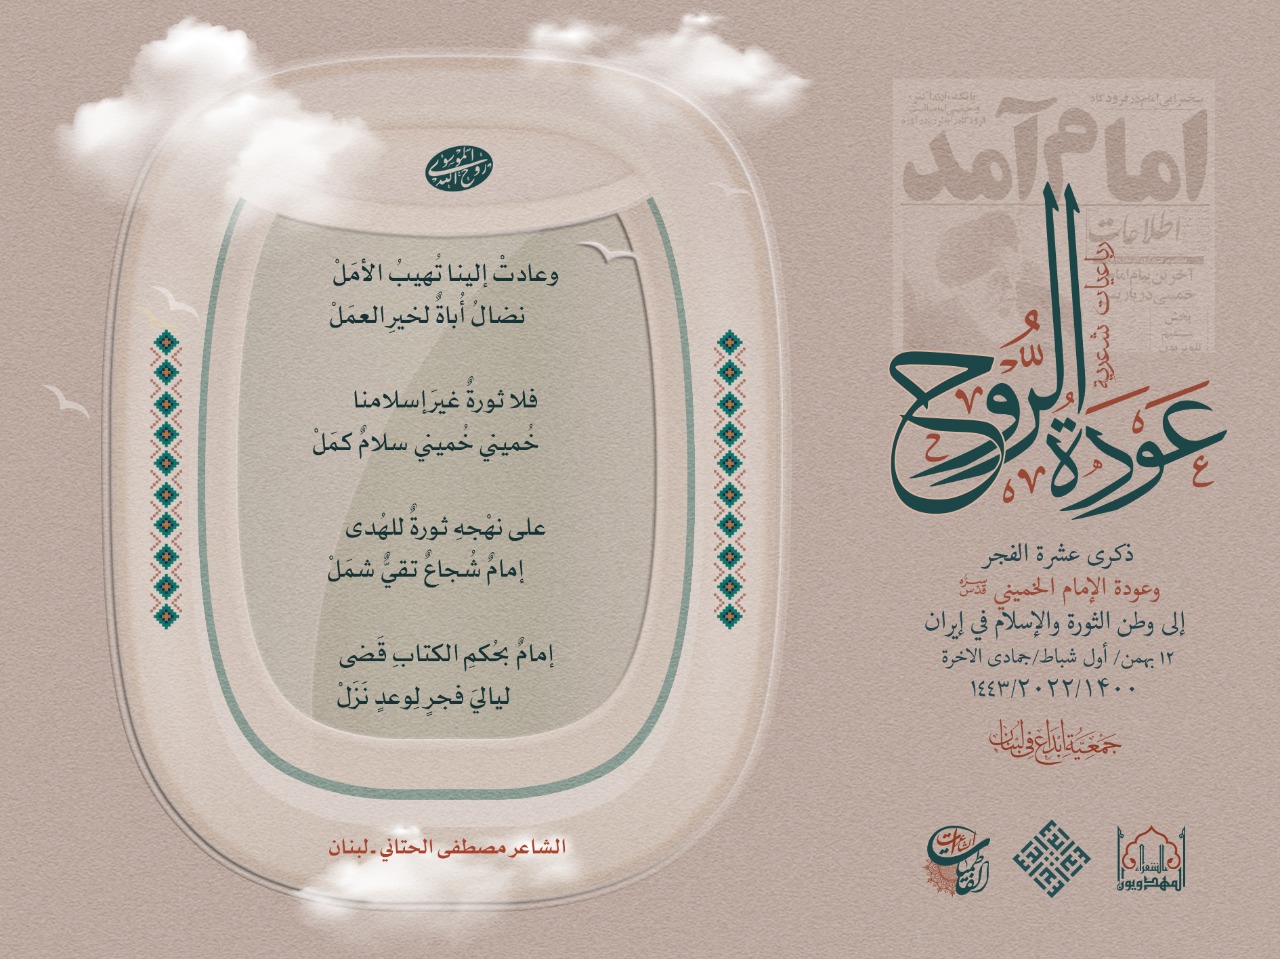 سخنرانی امام در فرودگاه
امام آمد
اطلاعات
آخرین پیام امام
خمینی در پاریس
پخش
مستقیم
تلویزیون
رباعيات شعرية
عودة الرُّوح
ذكرى عشرة الفجر
وعودة الإمام الخميني قدّس سرّه
إلى وطن الثورة والإسلام في إيران
١٢ بهمن/ أول شباط/جمادى الاخرة
١٤٠٠/٢٠٢٢/١٤٤٣
جمعيّة إبداع في لبنان
الشعراء
المهدويون
روح الله الموسوي
وعادتْ إلينا تُهيبُ الأمَلْ
نضالُ أُباةٌ لخيرِ العمَلْ
فلا ثورةٌ غيرَ إسلامنا
خُميني خُميني سلامٌ كمَلْ
على نهْجهِ ثورةٌ للهُدى
إمامٌ شُجاعٌ تقيٌّ شمَلْ
إمامٌ بحُكمِ الكتابِ قَضى
لياليَ فجرٍ لِوعدٍ نَزَلْ
الشاعر مصطفى الحتاني ـ لبنان